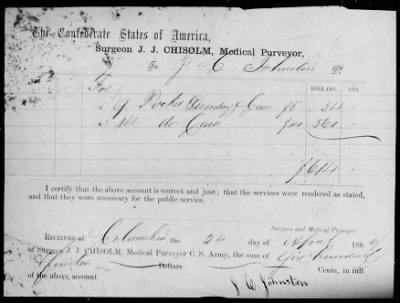 The Confederate States of America,
Surgeon J. J. CHISOLM, Medical Purveyor,
To J C Johnston
DOLLARS. CTS.
For
" 9 Pocket & Cases $6 54
" 14 do Cases $40 560
$614
I certify that the above account is correct and just; that the services were rendered as stated,
and that they were necessary for the public service.
Surgeon and Medical Purveyor.
RECEIVED AT Columbia the 24 day of April 186
of Surgeon J. J. CHISOLM, Medical Purveyor C. S. Army, the sum of Six hundred
Dollars Cents, in full
of the above account.
J. C. Johnston